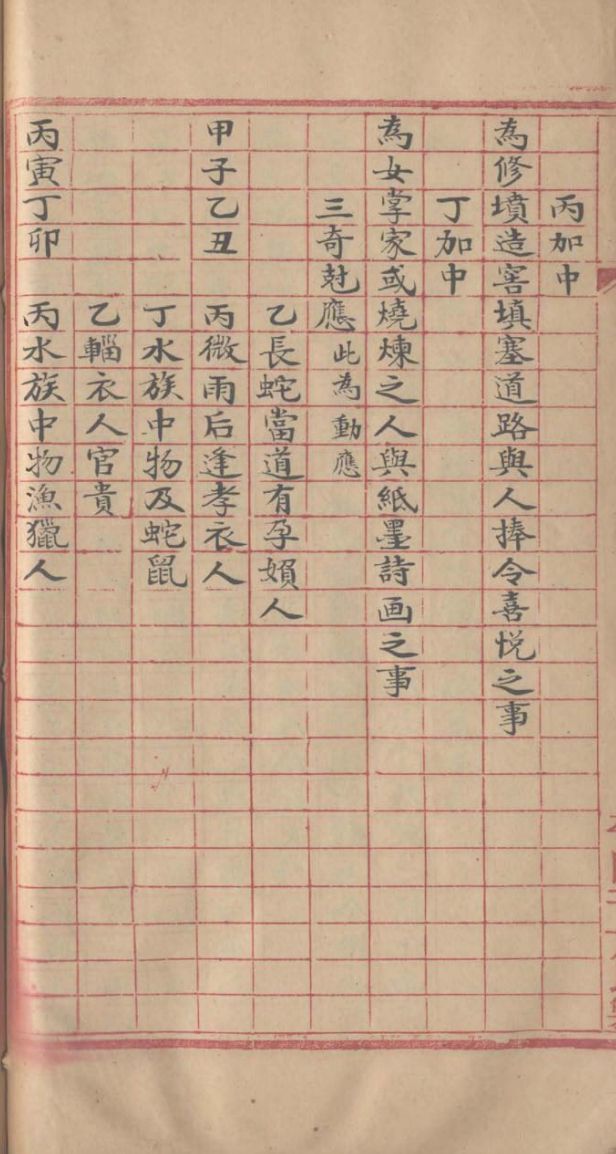 丙加中
為修墳造窖填塞道路與人捧令喜悅之事
丁加中
為女掌家或燒煉之人與紙墨詩画之事
三奇尅應 此為動應
乙長蛇當道有孕嬪人
甲子乙丑 丙微雨后逢孝衣人
丁水族中物及蛇鼠
乙輜衣人官貴
丙寅丁卯 丙水族中物漁獵人